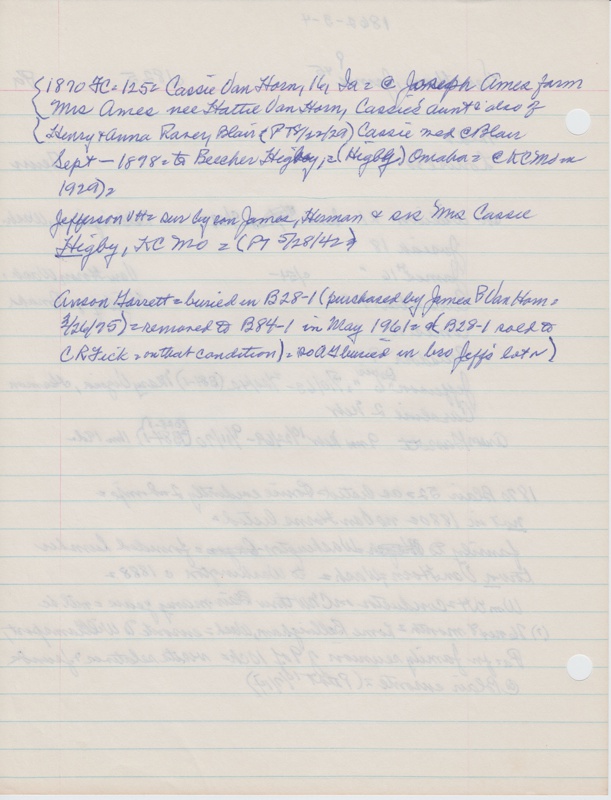 1870 FC = 125 = Cassie Van Horn, 16, Ia = @ Joseph Ames farm
Mrs Ames nee Hattie Van Horn, Cassie's aunt & also of
Henry & Anna Raver, Blair (PT 8/22/29) Cassie med c Blair
Sept - 1878 = to Beecher Higby, = (Higby) Omaha = c KC Mo in
1929) =
Jefferson VH = sur by son James, Herman & sis Mrs Cassie
Higby, KC Mo = (PT 5/28/42)
Anson Garrett = buried in B28-1 (purchased by James B Van Horn =
3/26/25) = removed to B84-1 in May 1961 = (B28-1 sold to
CR Fick = on that condition) = so AG buried in bro Jeff's lot)